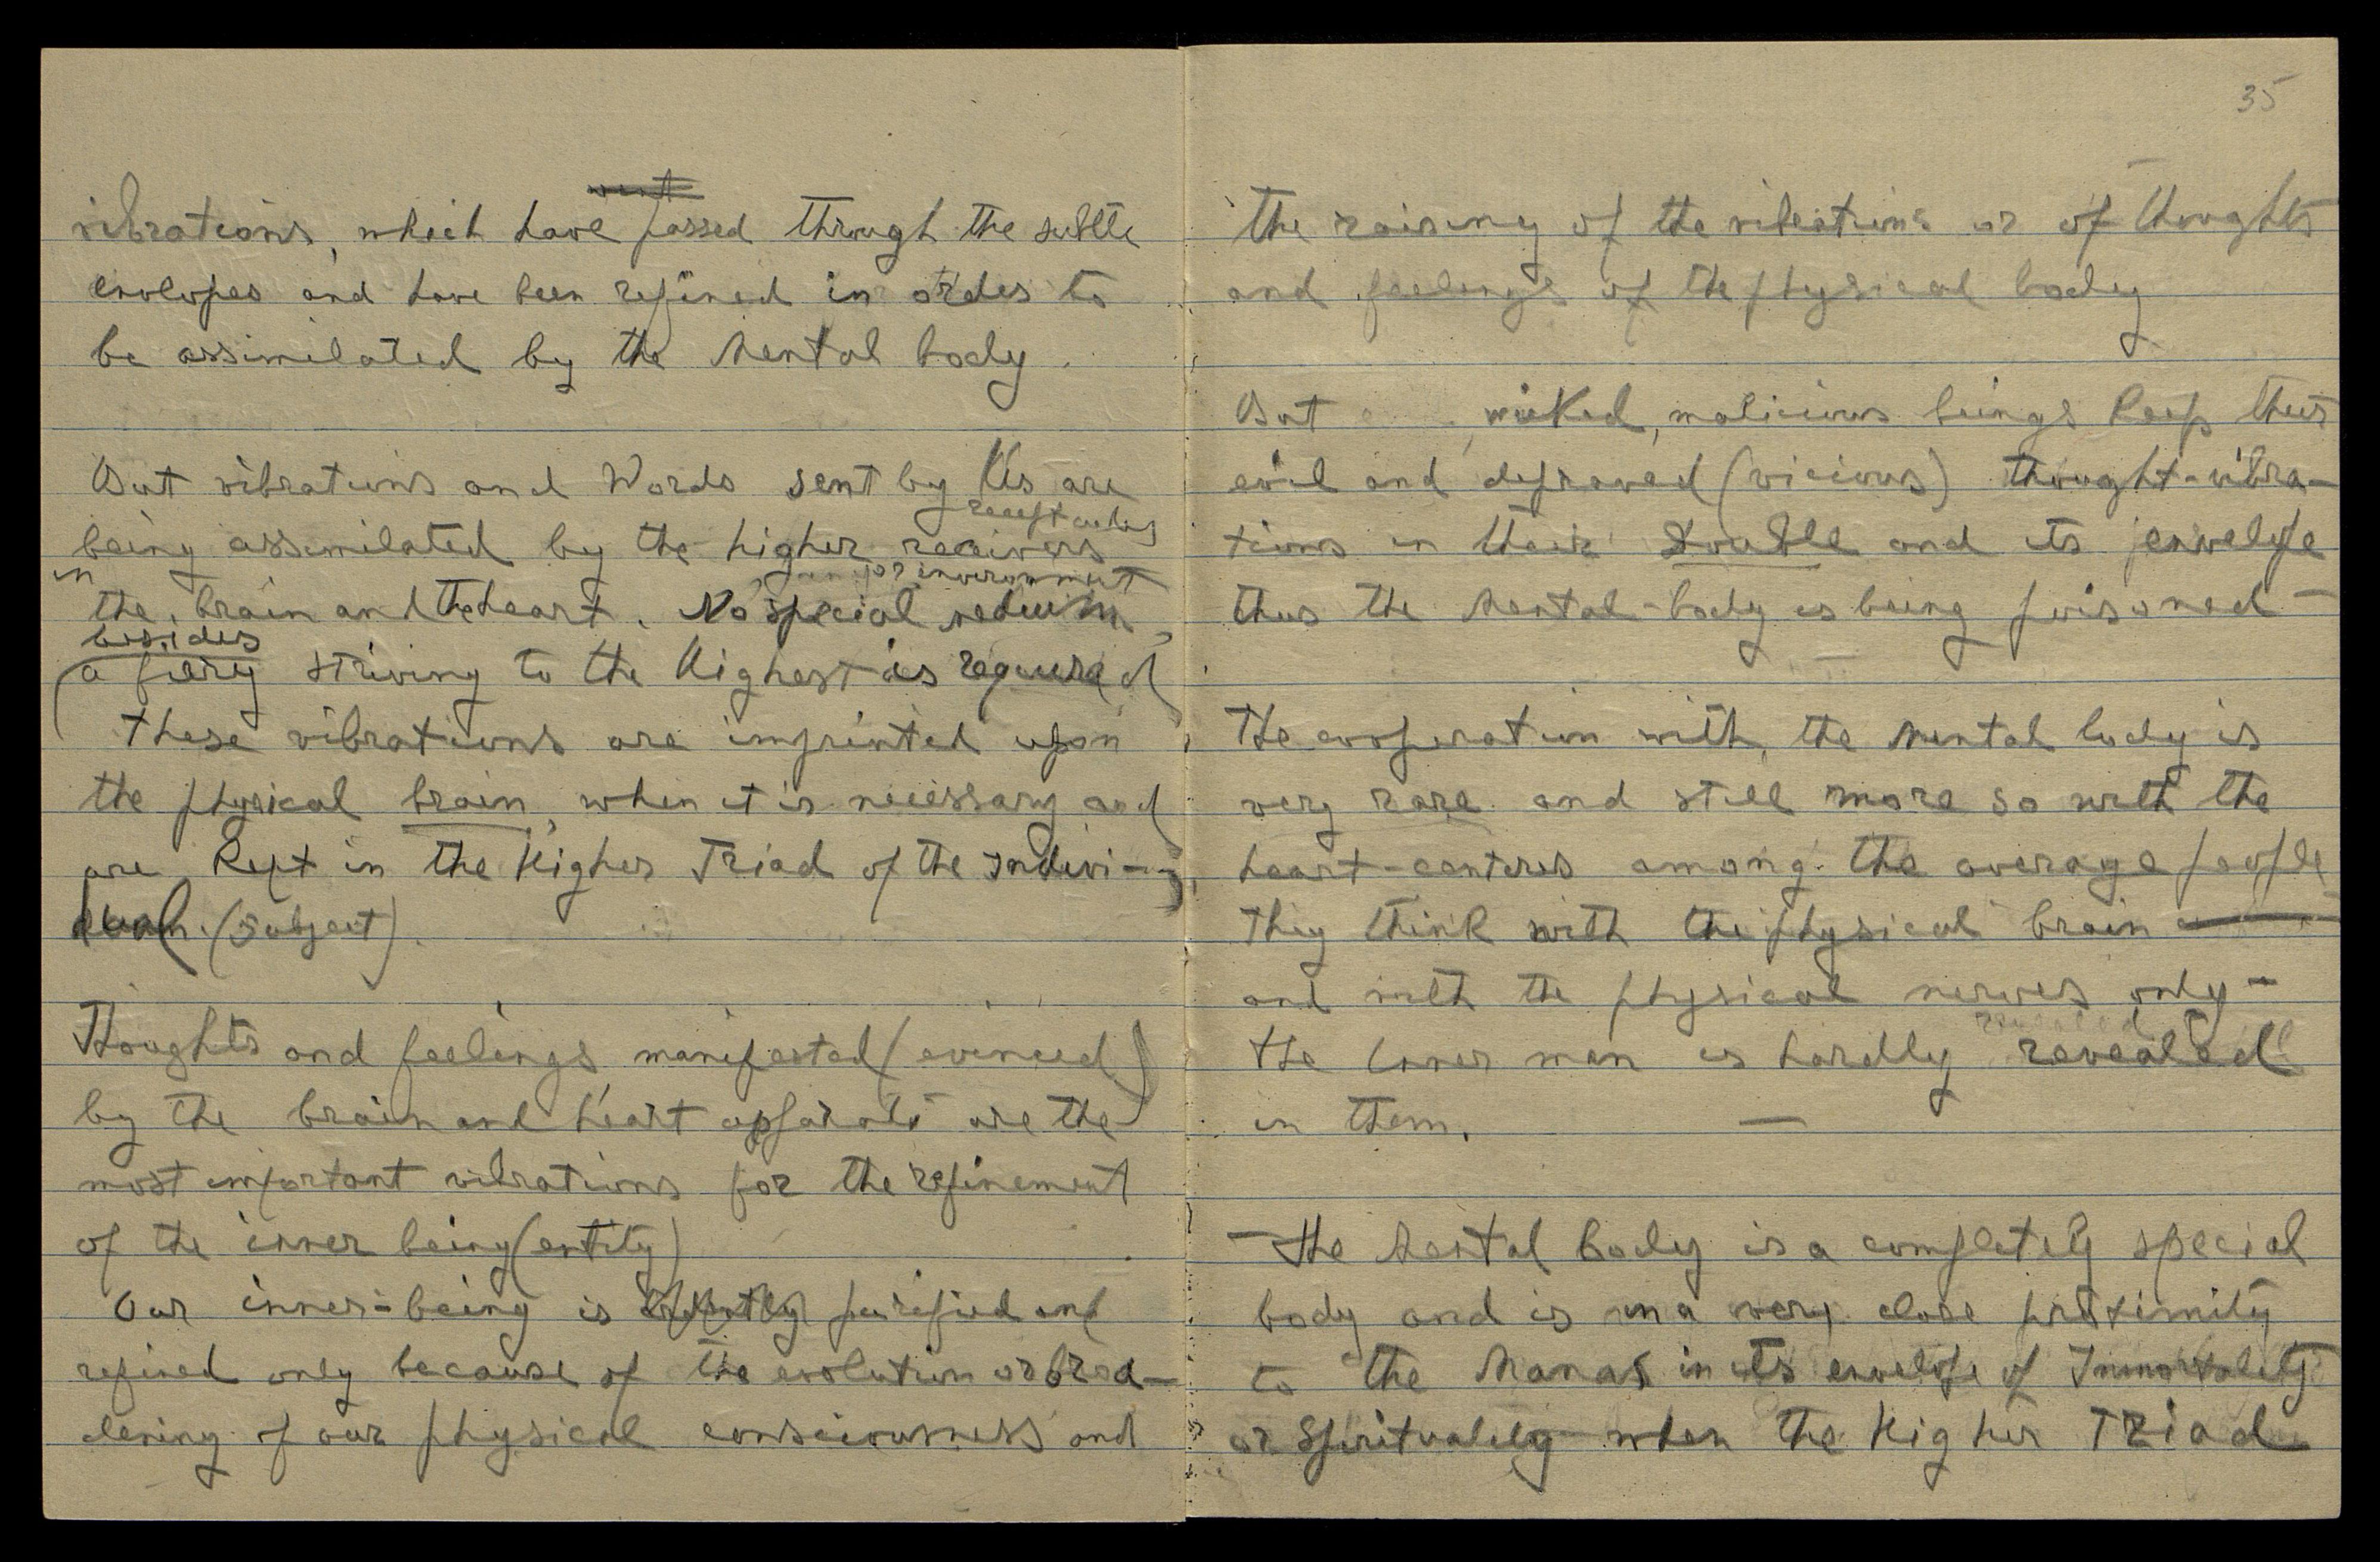 went
vibrations, which have passed through the subtle
envelopes and have been refined in order to
be assimilated by the Mental body.
But vibrations and Words sent by Us are
receptacles
being assimilated by the higher receivers
in or invironment
the brain and the heart. No special medium,
besides
(a fiery striving to the Highest is required
These vibrations are imprinted upon
the physical brain, when it is necessary and
are kept in the Higher Triad of the indivi-
dual. (subject).
Thoughts and feelings, manifested (evinced)
by the brain and heart apparati are the
most important vibrations for the refinement
of the inner being (entity)
Our inner-being is purified and
refined only because of the evolution or broa-
dening of our physical consciousness and
35
the raising of the vibrations or of thoughts
and feelings of the physical body
But wicked, malicious beings keep their
evil and depraved (vicious) thought-vibra-
tions in their double and its envelope
thus the Mental-body is being poisoned -
The cooperation with the mental body is
very rare and still more so with the
heart-centres among the average people
They think with the physical brain
and with the physical nerves only -
the inner man is hardly revealed
in them. —
- The Mental body is a completely special
body and is in a very close proximity
to the Manas in its envelope of Immortality
or Spirituality when the Higher Triad